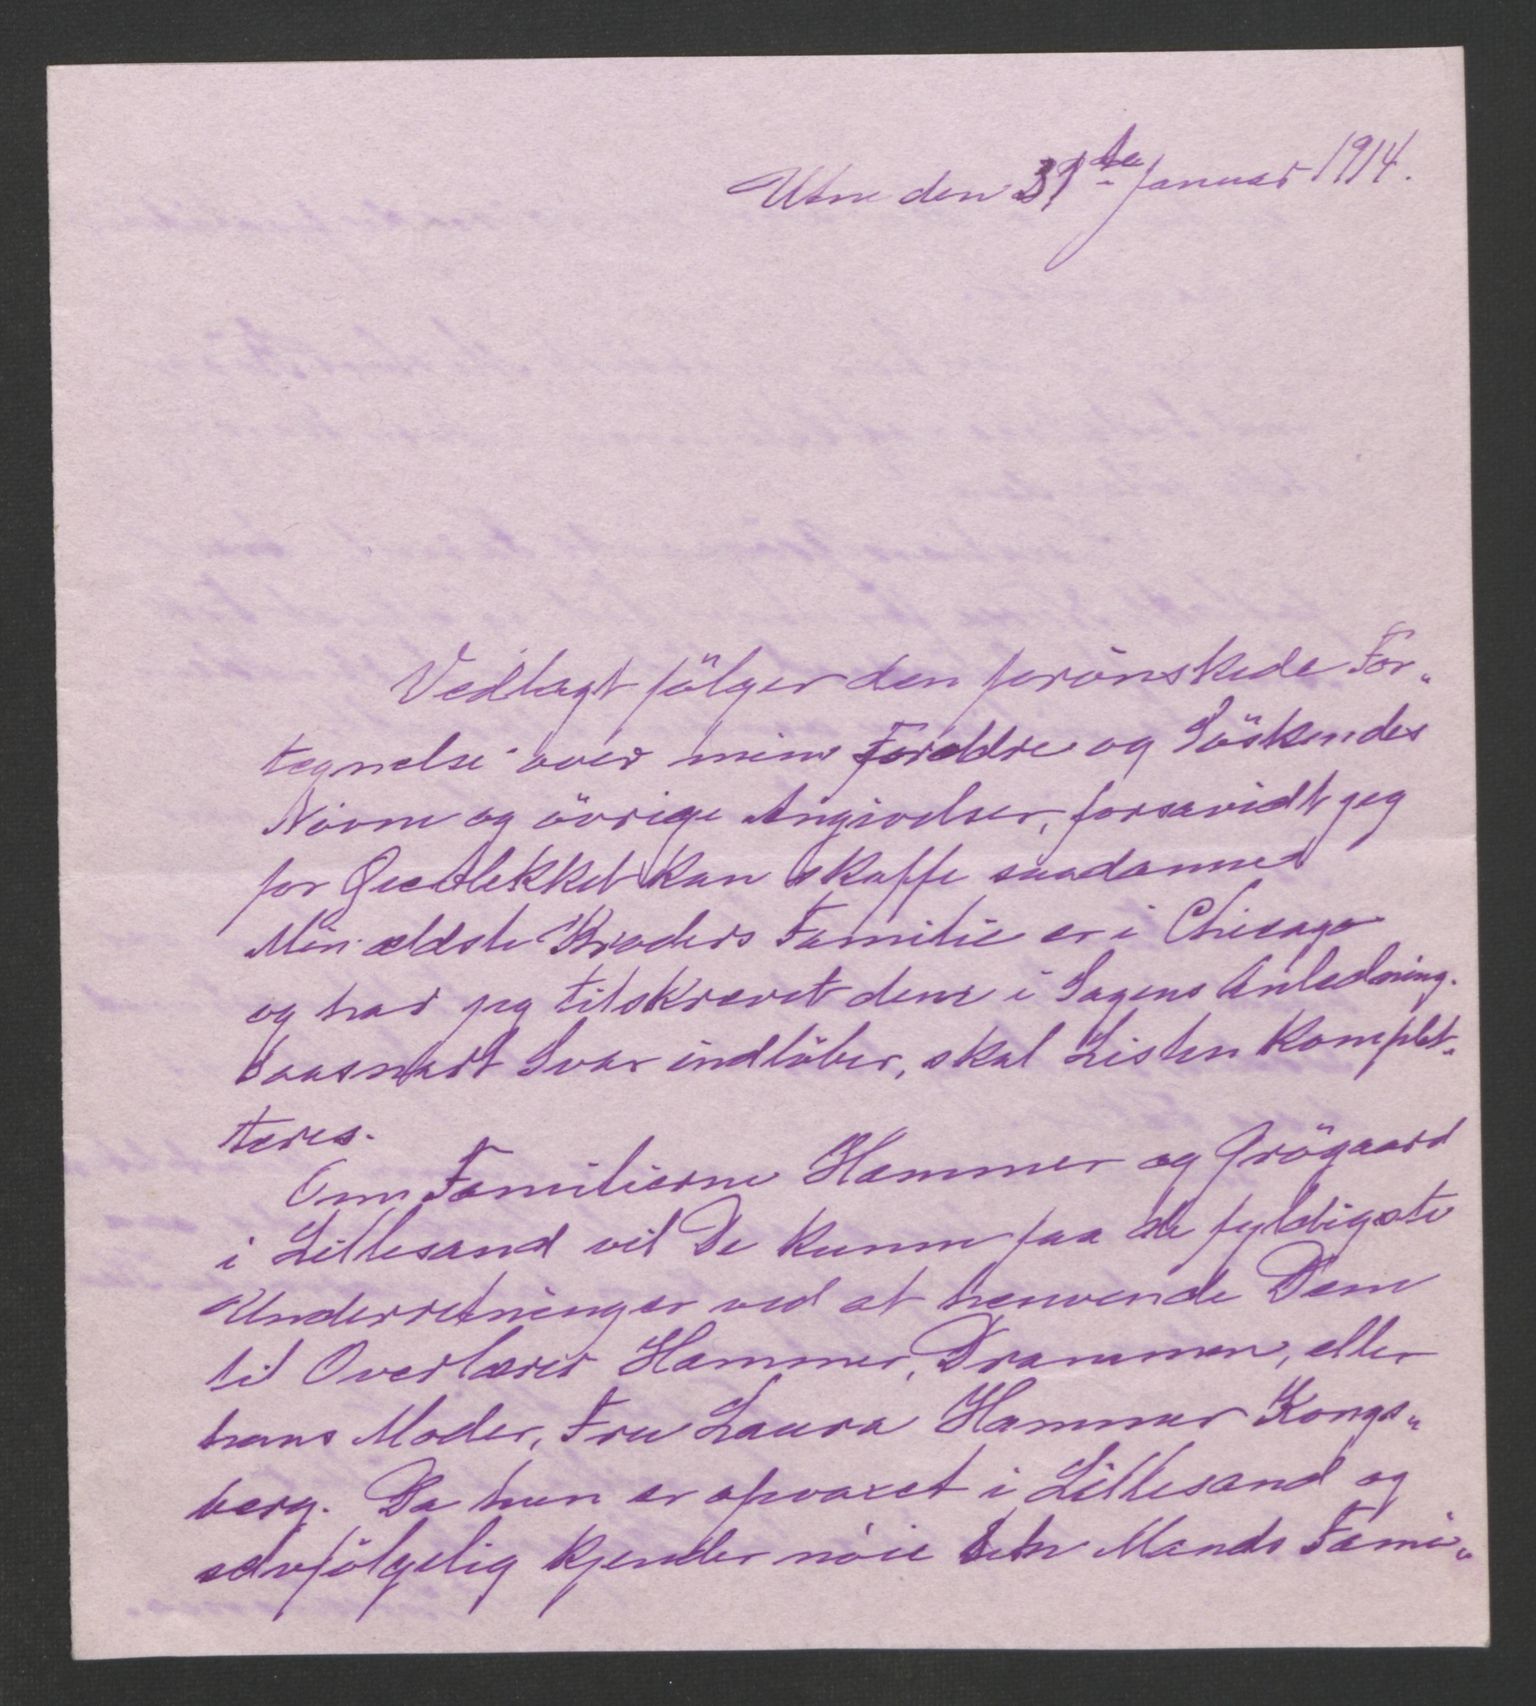 Utne den 31te Januar 1914.
Vedlagt fölger den forönskede For„
tegnelse over mine Forældre og Söskendes
Navne og övrige Angivelser, forsavidt jeg
for Öieblekket kan skaffe saadanne
Min ældste Broders Familie er i Chicago
og har jeg tilskrevet dem i Sagens Anledning.
Saasnart Svar indlöber, skal Listen komplet„
teres.
Om Familierne Hammer og Grögaard
i Lillesand vil De kunne faa de fyldigste
Underretninger ved at henvende Dem
til Overlærer Hammer, Drammen, eller
hans Moder, Fru Laura Hammer Kongs„
berg. Da hun er opvoxet i Lillesand og
selvfölgelig kjender nöie sin Mands Fami„